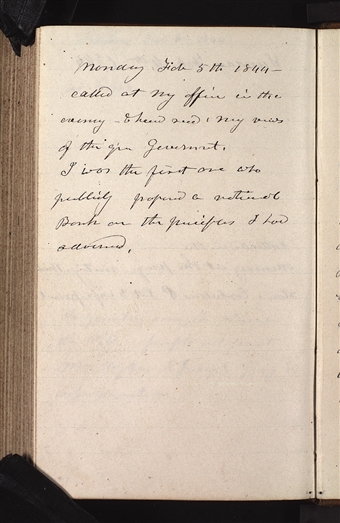 Monday Feb 5th 1844 –
called at my office in the
evening – & heard read my views
of the gen Goverment.
I was the first one who
publicly proposed a national
Bank on the principles I had
advanced.